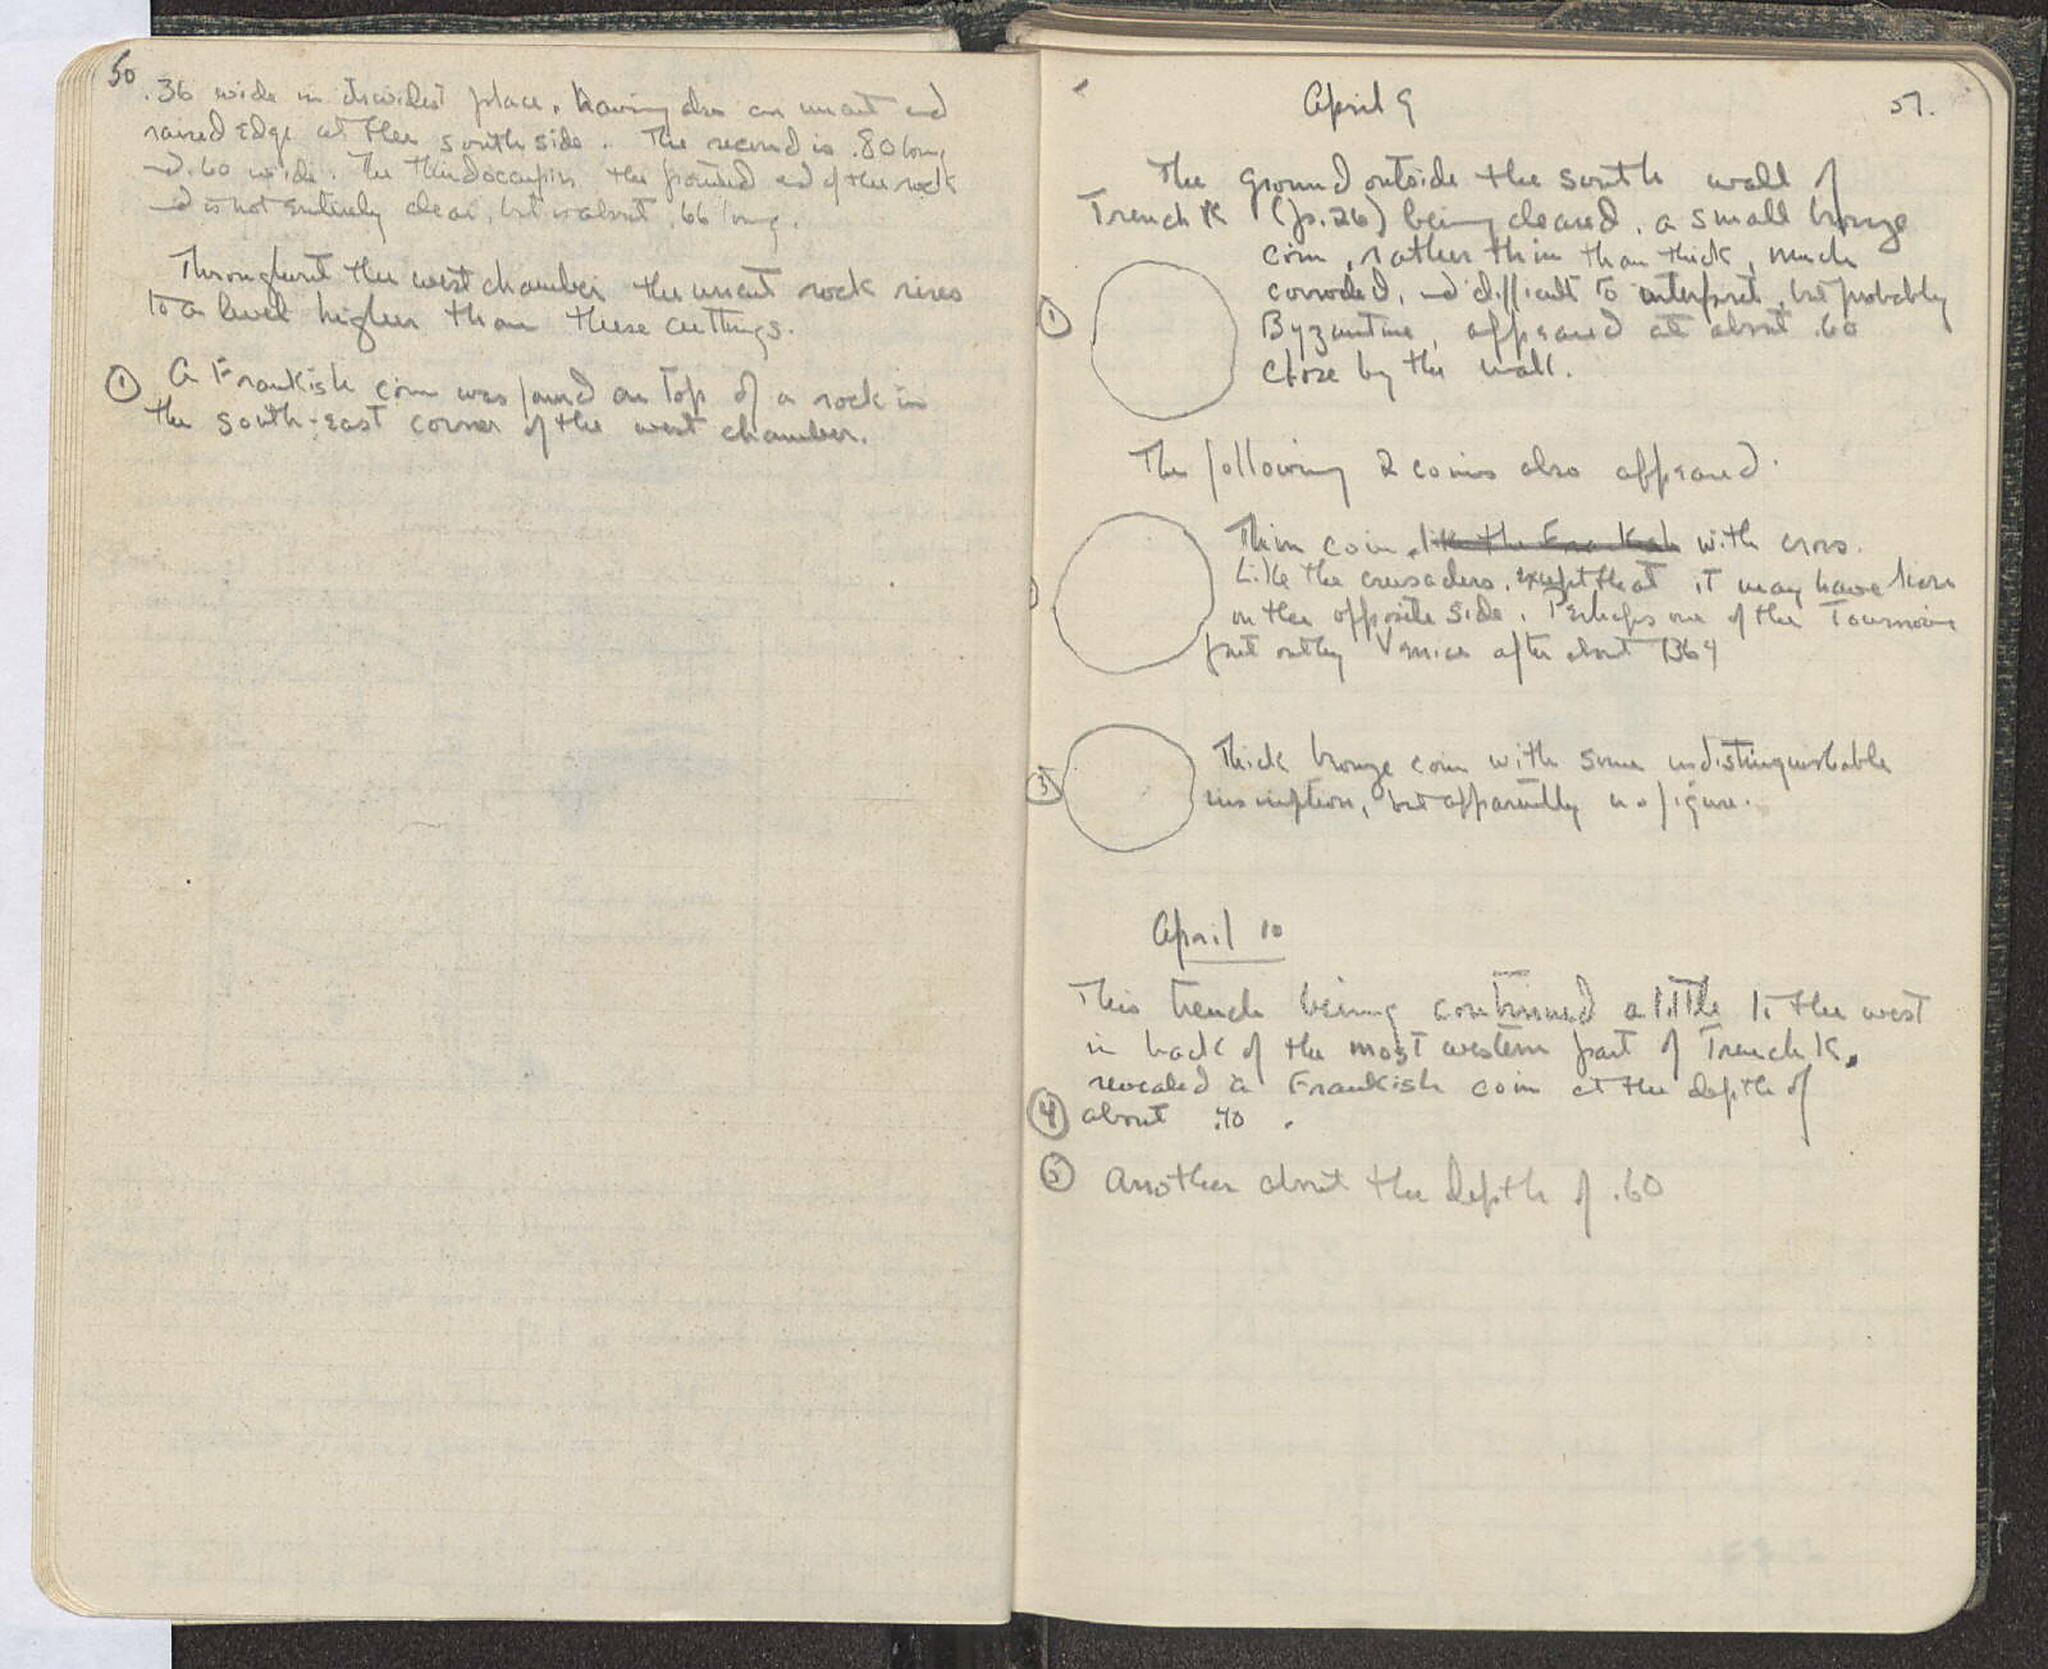 50
.36 wide in its widest place, having also an uncut end
raised edge at the south side. The second is .80 long
and .60 wide. The third occupies the pointed end of the rock
and is not entirely clear, but is about .66 long.
Throughout the west chamber the uncut rock rises
to a level higher than these cuttings.
① A Frankish coin was found on top of a rock in
the south-east corner of the west chamber.
April 9
51.
The ground outside the south wall of
Trench K (p. 26) being cleared, a small bronze
coin, rather thin than thick, much
corroded, and difficult to interpret, but probably
① Byzantine, appeared at about .60
close by the wall.
The following 2 coins also appeared.
Thin coin, like the Frankish with cross.
Like the crusaders, except that it may have
on the opposite side. Perhaps one of the Tournois
put out by Venice after about 1364
③ Thick bronze coin with some indistinguishable
inscription, but apparently no figure.
April 10
This trench being continued a little to the west
in back of the most western part of Trench K,
revealed a Frankish coin at the depth of
④ about .40.
⑤ Another about the depth of .60